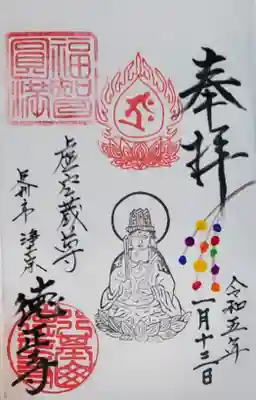 奉拝
令和五年
一月十三日
福智
圓満
虚空蔵尊
徳正寺